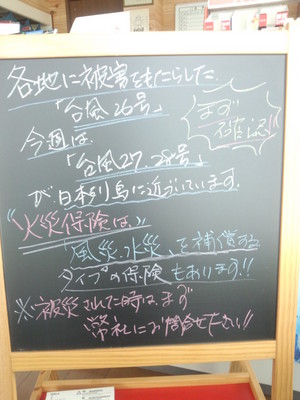 各地に被害をもたらした
「台風26号」
まず
確認!!
今週は
「台風27,28号」
が日本列島に近づいています。
"火災保険は、"
「風災、水災」を補償する
タイプの保険もあります!!
※被災された時は、まず
弊社にお問合せ下さい!!